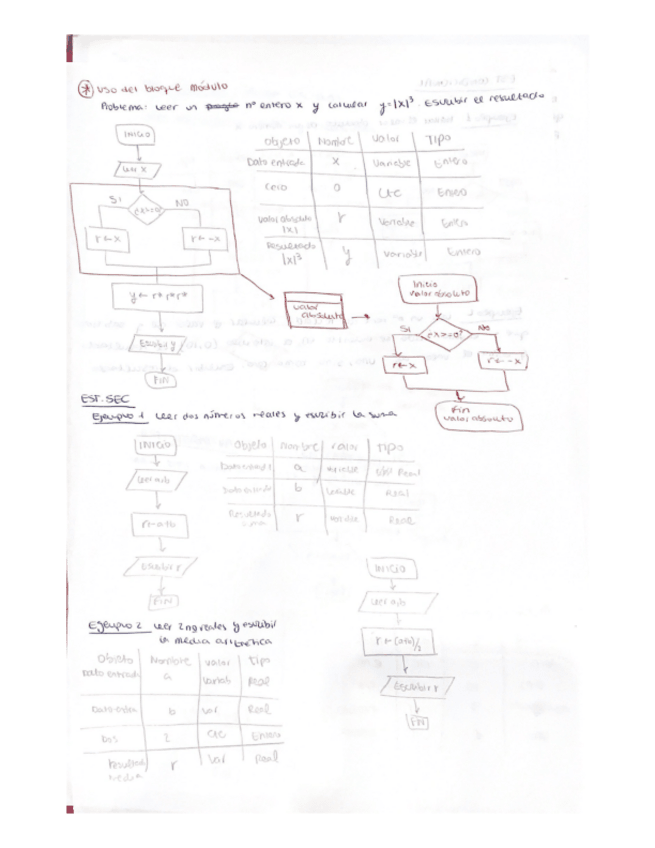 * Uso del bloque módulo
Problema: Leer un nº entero x y calcular y=|x|³ Escribir el resultado
INICIO
Leer x
Si
¿x>=0?
NO
r ← x
r ← -x
y ← r*r*r
Escribir y
FIN
Objeto Nombre Valor Tipo
Dato entrada x Variable Entero
Cero 0 Cte Entero
Valor absoluto |x| r Variable Entero
Resultado |x|³ y Variable Entero
valor absoluto
Inicio
valor absoluto
Si
¿x>=0?
No
r ← x
r ← -x
Fin
valor absoluto
EST. SEC
Ejemplo 1 Leer dos números reales y escribir la suma
INICIO
Leer a,b
r ← a+b
Escribir r
FIN
Objeto Nombre Valor Tipo
Dato entrada a Variable Real
Dato entrada b Variable Real
Resultado suma r Variable Real
Ejemplo 2 Leer 2 nº reales y escribir
la media aritmética
Objeto Nombre Valor Tipo
Dato entrada a Variab Real
Dato entra b Var Real
Dos 2 Cte Entero
Resultado media r Var Real
INICIO
Leer a,b
r ← (a+b)/2
Escribir r
FIN